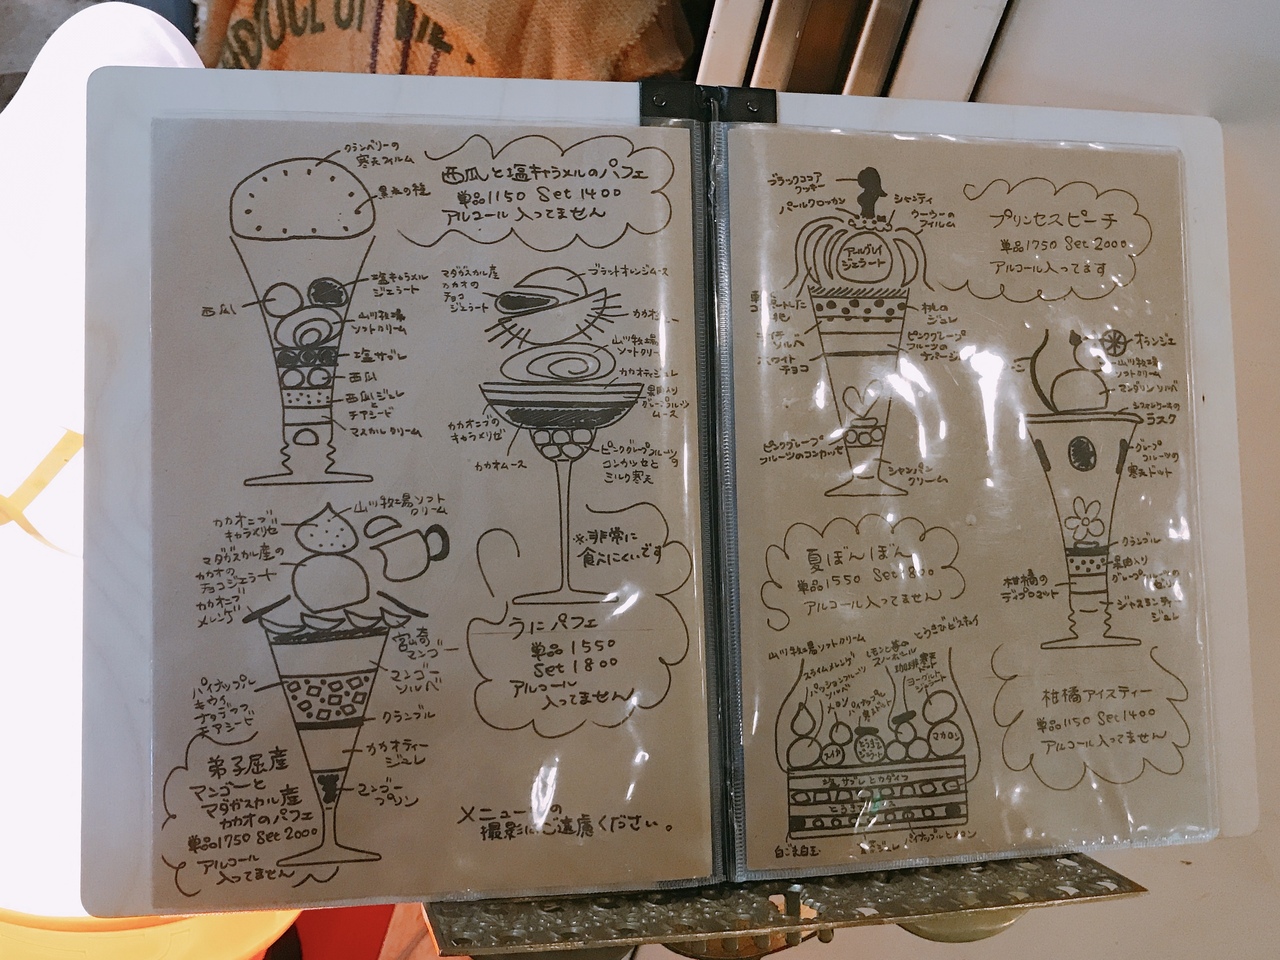 クランベリーの
寒天フィルム
西瓜と塩キャラメルのパフェ
単品1150 Set 1400
アルコール入ってません
塩キャラメル
ジェラート
西瓜
山川牧場
ソフトクリーム
塩サブレ
西瓜
西瓜ジュレ
と
チアシード
マスカルクリーム
マダガスカル産
カカオの
チョコ
ジェラート
ブラッドオレンジムース
山川牧場
カカオティジュレ
果肉入り
グレープフルーツ
ムース
カカオニブの
キャラメリゼ
カカオムース
ピンクグレープフルーツの
コンカッセと
ミルク寒天
※非常に
食べにくいです
うにパフェ
単品1550
Set 1800
アルコール
入ってません
カカオニブ
キャラメリゼ
山川牧場ソフト
クリーム
マダガスカル産の
カカオの
チョコジェラート
カカオニブ
メレンゲ
宮崎
マンゴー
マンゴー
ソルベ
パイナップル
キウイ
ナタデココ
チアシード
クランブル
カカオティー
ジュレ
マンゴー
プリン
弟子屈産
マンゴーと
マダガスカル産
カカオのパフェ
単品1750 Set 2000
アルコール
入ってません
撮影はご遠慮ください。
ブラックココア
クッキー
パールクロッカン
シャンティ
フィルム
アールグレイ
ジェラート
プリンセスピーチ
単品1750 Set 2000
アルコール入ってます
桃の
ジュレ
ピンクグレープ
フルーツの
ホワイト
チョコ
ピンクグレープ
フルーツのコンカッセ
シャンパン
クリーム
オランジェ
山川牧場
ソフトクリーム
マンダリンソルベ
シフォンケーキの
ラスク
グレープ
フルーツの
寒天ドット
クランブル
果肉入り
グレープフルーツの
ゼリー
柑橘の
ディプロマット
ジャスミンティ
ジュレ
柑橘アイスティー
単品1150 Set 1400
アルコール入ってません
夏ぼんぼん
単品1550 Set 1800
アルコール入ってません
山川牧場ソフトクリーム
とうきびビスキュイ
スライムメレンゲ
パッションフルーツ
ソルベ
メロン
パイナップル
ヨーグルト
ジェラート
スイカ
とうきび
ジェラート
マカロン
塩サブレとカダイフ
白ごま白玉
パイナップルとメロン